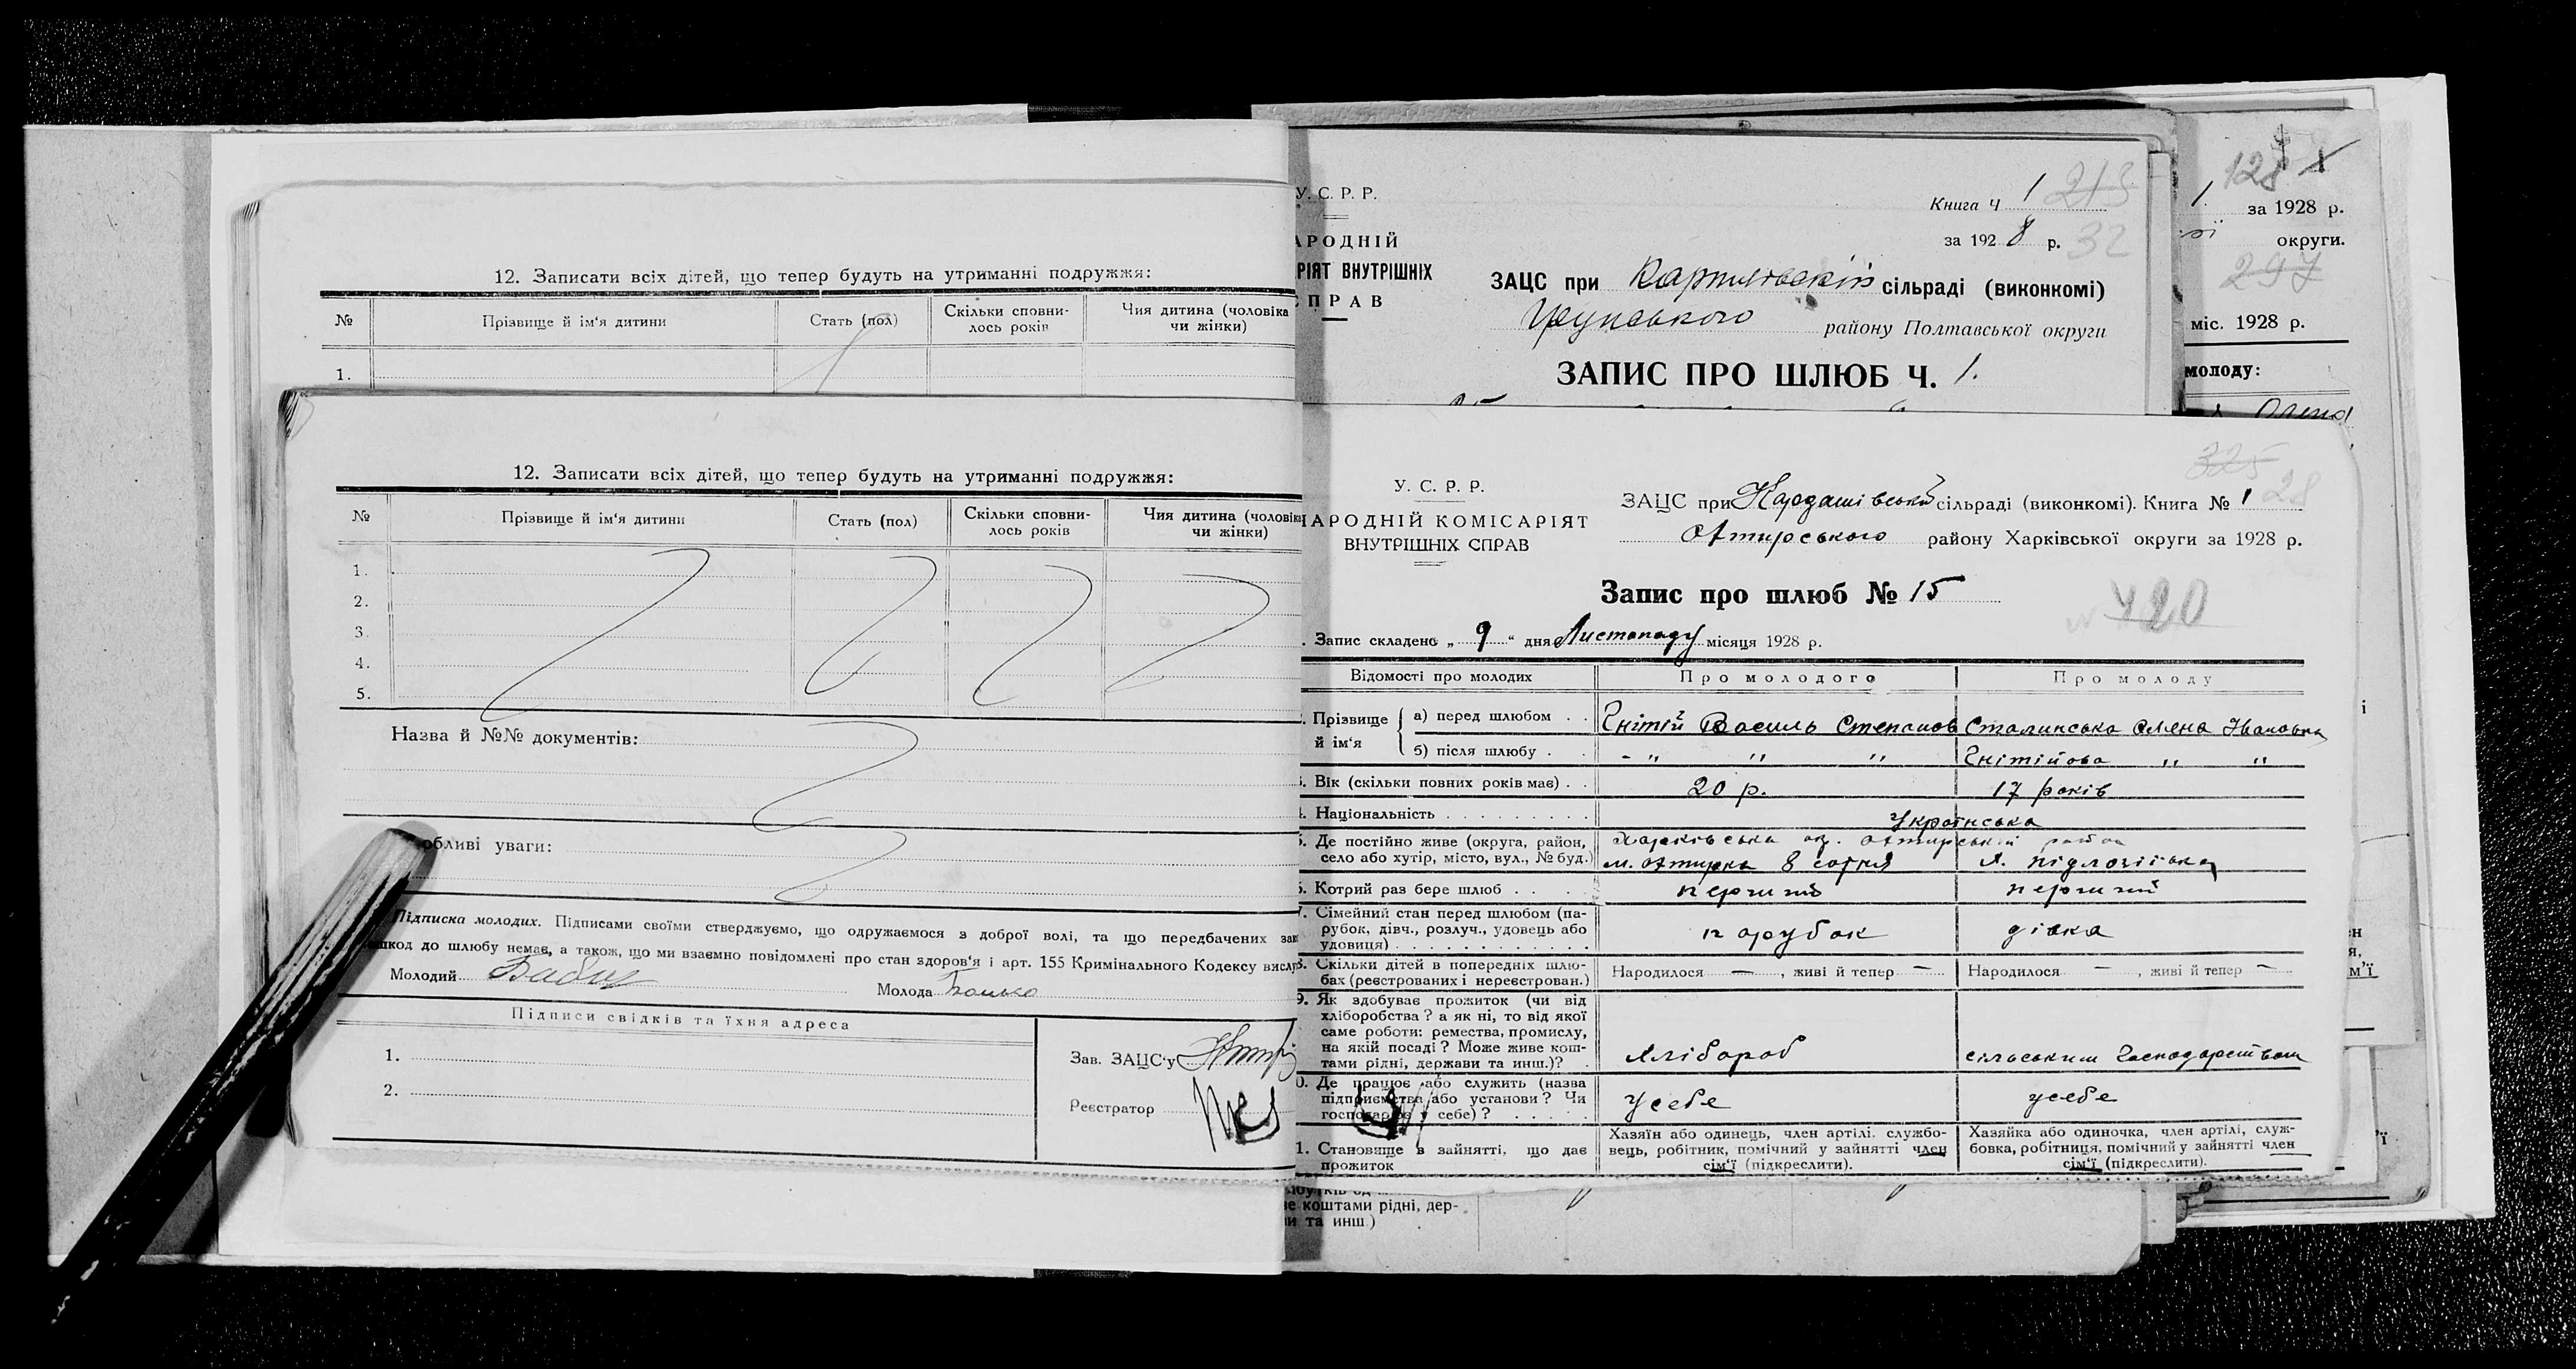 12. Записати всіх дітей, що тепер будуть на утриманні подружжя:
№ Прізвище й ім'я дитини Стать (пол) Скільки сповни- Чия дитина (чоловіка
лось років чи жінки)
1.
12. Записати всіх дітей, що тепер будуть на утриманні подружжя:
№ Прізвище й ім'я дитини Стать (пол) Скільки сповни- Чия дитина (чоловіка
лось років чи жінки)
1.
2.
3.
4.
5.
Назва й №№ документів:
обливі уваги:
Підписка молодих. Підписами своїми стверджуємо, що одружаємося з доброї волі, та що передбачених зак
шкод до шлюбу немає, а також, що ми взаємно повідомлені про стан здоров'я і арт. 155 Кримінального Кодексу вислу
Молодий Молода
Підписи свідків та їхня адреса
1.
2.
Зав. ЗАЦС'у
Реєстратор
У. С. Р. Р.
АРОДНІЙ
РІЯТ ВНУТРІШНІХ
СПРАВ
Книга Ч 1 215
за 1928 р. 32
ЗАЦС при сільраді (виконкомі)
району Полтавської округи
ЗАПИС ПРО ШЛЮБ Ч. 1.
128
1. за 1928 р.
округи.
297
міс. 1928 р.
молоду:
325
28
У. С. Р. Р.
НАРОДНІЙ КОМІСАРІЯТ
ВНУТРІШНІХ СПРАВ
ЗАЦС при Кардашівській сільраді (виконкомі). Книга № 1
Охтирського району Харківської округи за 1928 р.
Запис про шлюб № 15
420
. Запис складено „ 9 " дня Листопаду місяця 1928 р.
Відомості про молодих Про молодого Про молоду
. Прізвище й ім'я а) перед шлюбом . . Гнітій Василь Степанов Сталинська Олена Івановна
б) після шлюбу . - " " " Гнітійова " "
. Вік (скільки повних років має) . . 20 р. 17 років
. Національність Українська
. Де постійно живе (округа, район, Харківська ок. Охтирський район
село або хутір, місто, вул., № буд.) м. Охтирка 8 сотня
. Котрий раз бере шлюб . . перший перший
7. Сімейний стан перед шлюбом (па-
рубок, дівч., розлуч., удовець або
удовиця) парубок дівка
8. Скільки дітей в попередніх шлю- Народилося — , живі й тепер — Народилося — , живі й тепер —
бах (реєстрованих і нереєстрован.)
9. Як здобуває прожиток (чи від
хліборобства? а як ні, то від якої
саме роботи: ремества, промислу,
на якій посаді? Може живе кош-
тами рідні, держави та инш.)? Хлібороб сільським господарством
0. Де працює або служить (назва
підприємства або установи? Чи
господарює у себе)? у себе у себе
1. Становище в зайнятті, що дає
прожиток
Хазяїн або одинець, член артілі, службо-
вець, робітник, помічний у зайнятті член
сім'ї (підкреслити).
Хазяйка або одиночка, член артілі, служ-
бовка, робітниця, помічний у зайнятті член
сім'ї (підкреслити).
е коштами рідні, дер-
и та инш.)